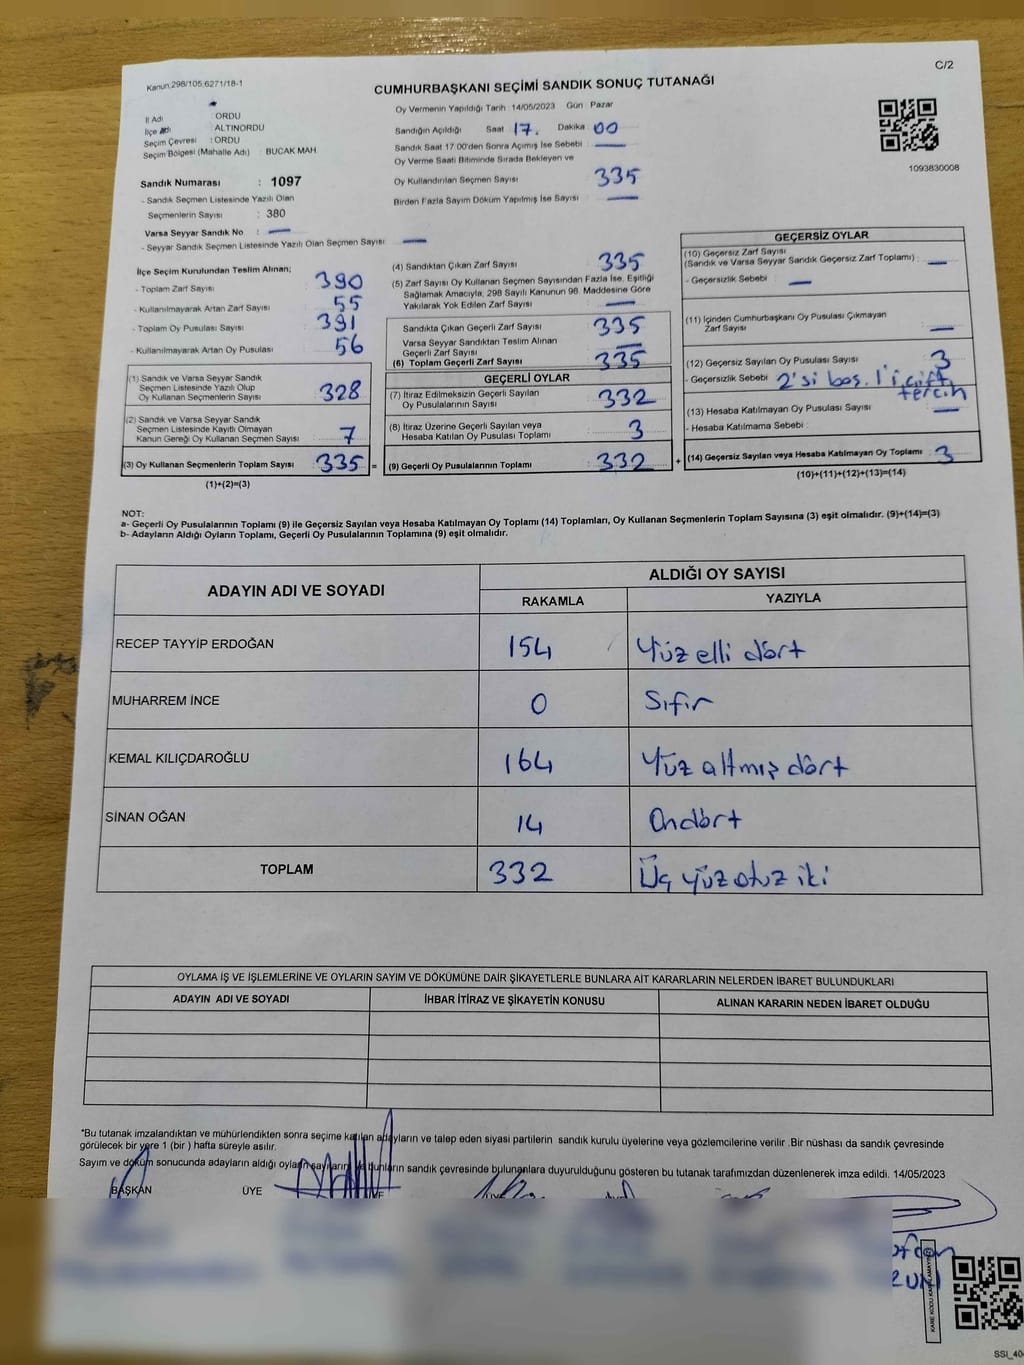 C/2
Kanun:298/105;6271/18-1
CUMHURBAŞKANI SEÇİMİ SANDIK SONUÇ TUTANAĞI
İl Adı : ORDU
İlçe Adı : ALTINORDU
Seçim Çevresi : ORDU
Seçim Bölgesi (Mahalle Adı) BUCAK MAH.
Sandık Numarası : 1097
- Sandık Seçmen Listesinde Yazılı Olan
Seçmenlerin Sayısı : 380
Varsa Seyyar Sandık No : —
- Seyyar Sandık Seçmen Listesinde Yazılı Olan Seçmen Sayısı: —
Oy Vermenin Yapıldığı Tarih 14/05/2023 Gün : Pazar
Sandığın Açıldığı Saat 17. Dakika 00
Sandık Saat 17:00'den Sonra Açımış İse Sebebi —
Oy Verme Saati Bitiminde Sırada Bekleyen ve
Oy Kullandırılan Seçmen Sayısı 335
Birden Fazla Sayım Döküm Yapılmış İse Sayısı —
1093830008
İlçe Seçim Kurulundan Teslim Alınan;
- Toplam Zarf Sayısı 390
- Kullanılmayarak Artan Zarf Sayısı 55
- Toplam Oy Pusulası Sayısı 391
- Kullanılmayarak Artan Oy Pusulası 56
(1) Sandık ve Varsa Seyyar Sandık
Seçmen Listesinde Yazılı Olup
Oy Kullanan Seçmenlerin Sayısı 328
(2) Sandık ve Varsa Seyyar Sandık
Seçmen Listesinde Kayıtlı Olmayan
Kanun Gereği Oy Kullanan Seçmen Sayısı 7
(3) Oy Kullanan Seçmenlerin Toplam Sayısı 335 =
(1)+(2)=(3)
(4) Sandıktan Çıkan Zarf Sayısı 335
(5) Zarf Sayısı Oy Kullanan Seçmen Sayısından Fazla İse, Eşitliği
Sağlamak Amacıyla, 298 Sayılı Kanunun 98. Maddesine Göre
Yakılarak Yok Edilen Zarf Sayısı —
Sandıkta Çıkan Geçerli Zarf Sayısı 335
Varsa Seyyar Sandıktan Teslim Alınan
Geçerli Zarf Sayısı —
(6) Toplam Geçerli Zarf Sayısı 335
GEÇERLİ OYLAR
(7) İtiraz Edilmeksizin Geçerli Sayılan
Oy Pusulalarının Sayısı 332
(8) İtiraz Üzerine Geçerli Sayılan veya
Hesaba Katılan Oy Pusulası Toplamı 3
(9) Geçerli Oy Pusulalarının Toplamı 332 +
GEÇERSİZ OYLAR
(10) Geçersiz Zarf Sayısı
(Sandık ve Varsa Seyyar Sandık Geçersiz Zarf Toplamı) : —
- Geçersizlik Sebebi : —
(11) İçinden Cumhurbaşkanı Oy Pusulası Çıkmayan
Zarf Sayısı —
(12) Geçersiz Sayılan Oy Pusulası Sayısı 3
- Geçersizlik Sebebi 2'si boş. 1'i çift
tercih
(13) Hesaba Katılmayan Oy Pusulası Sayısı —
- Hesaba Katılmama Sebebi :
(14) Geçersiz Sayılan veya Hesaba Katılmayan Oy Toplamı : 3
(10)+(11)+(12)+(13)=(14)
NOT:
a- Geçerli Oy Pusulalarının Toplamı (9) ile Geçersiz Sayılan veya Hesaba Katılmayan Oy Toplamı (14) Toplamları, Oy Kullanan Seçmenlerin Toplam Sayısına (3) eşit olmalıdır. (9)+(14)=(3)
b- Adayların Aldığı Oyların Toplamı, Geçerli Oy Pusulalarının Toplamına (9) eşit olmalıdır.
ADAYIN ADI VE SOYADI ALDIĞI OY SAYISI
RAKAMLA YAZIYLA
RECEP TAYYİP ERDOĞAN 154 Yüz elli dört
MUHARREM İNCE 0 Sıfır
KEMAL KILIÇDAROĞLU 164 Yüz altmış dört
SİNAN OĞAN 14 Ondört
TOPLAM 332 Üç yüz otuz iki
OYLAMA İŞ VE İŞLEMLERİNE VE OYLARIN SAYIM VE DÖKÜMÜNE DAİR ŞİKAYETLERLE BUNLARA AİT KARARLARIN NELERDEN İBARET BULUNDUKLARI
ADAYIN ADI VE SOYADI İHBAR İTİRAZ VE ŞİKAYETİN KONUSU ALINAN KARARIN NEDEN İBARET OLDUĞU
*Bu tutanak imzalandıktan ve mühürlendikten sonra seçime katılan adayların ve talep eden siyasi partilerin sandık kurulu üyelerine veya gözlemcilerine verilir .Bir nüshası da sandık çevresinde
görülecek bir yere 1 (bir ) hafta süreyle asılır.
Sayım ve döküm sonucunda adayların aldığı oyların sayılarını ve bunların sandık çevresinde bulunanlara duyurulduğunu gösteren bu tutanak tarafımızdan düzenlenerek imza edildi. 14/05/2023
BAŞKAN ÜYE